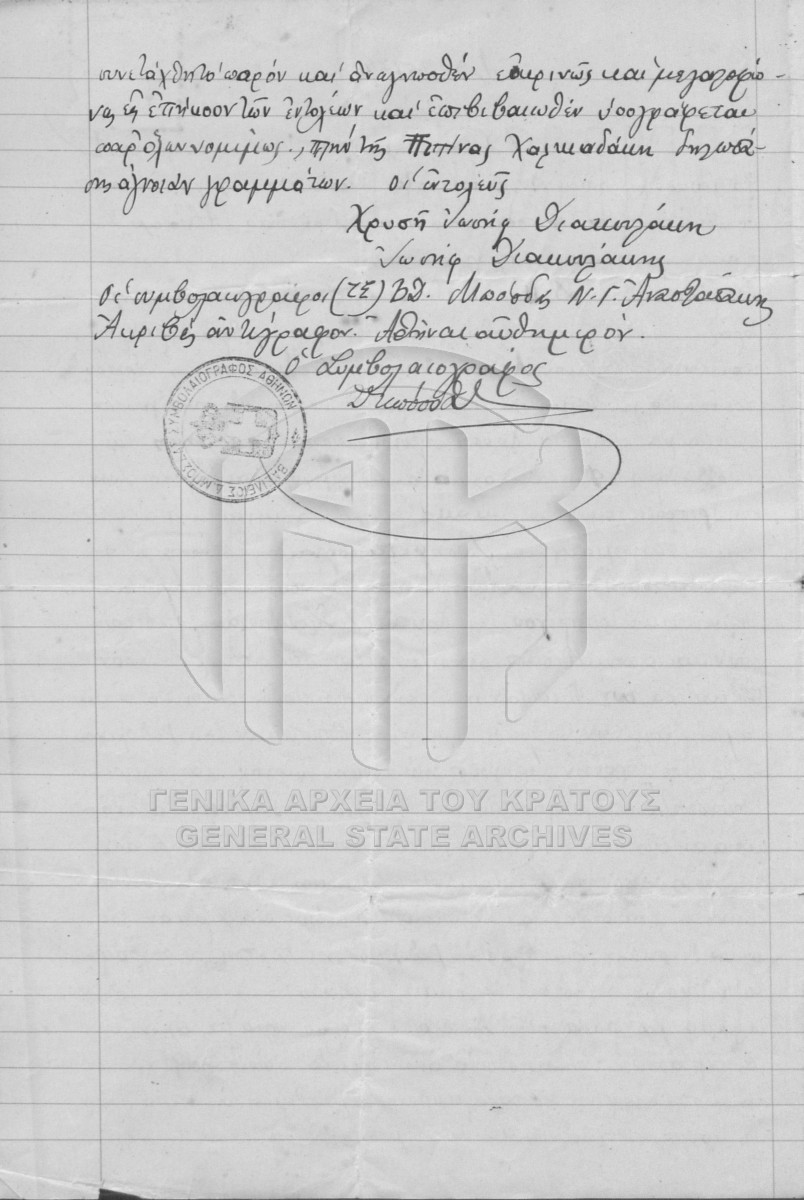 συνετάχθη το παρόν και αναγνωσθέν ευκρινώς και μεγαλοφώ-
νως εις επήκοον των εντολέων και επιβεβαιωθέν υπογράφεται
παρ' όλων νομίμως, πλην της Πιπίνας Χαλκιαδάκη δηλωσά-
σης άγνοιαν γραμμάτων. οι εντολείς
Χρυσή Ιωσήφ Διακουλάκη
Ιωσήφ Διακουλάκης
Οι συμβολαιογράφοι (ΤΣ) Β.Δ. Μπόσδας Ν. Γ. Αναστασάκης
Ακριβές αντίγραφον. Αθήναι αυθημερόν.
Ο Συμβολαιογράφος
ΣΥΜΒΟΛΑΙΟΓΡΑΦΟΣ ΑΘΗΝΩΝ
ΓΕΝΙΚΑ ΑΡΧΕΙΑ ΤΟΥ ΚΡΑΤΟΥΣ
GENERAL STATE ARCHIVES